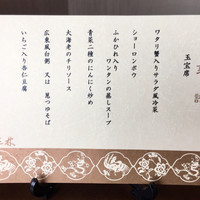 玉宝席
ワタリ蟹入りサラダ風冷菜
ショーロンポウ
ふかひれ入り
ワンタンの蒸しスープ
青菜二種のにんにく炒め
大海老のチリソース
広東風白粥 又は 葱つゆそば
いちご入り杏仁豆腐